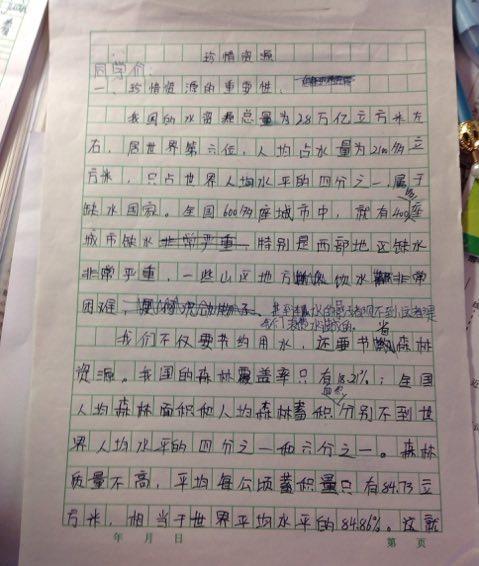 珍惜资源
同学们：
一、珍惜资源的重要性、
我国的水资源总量为2.8万亿立方米左
右，居世界第六位，人均占水量为2100多立
方米，只占世界人均水平的四分之一，属于
缺水国家。全国600多座城市中，就有400座
城市缺水非常严重 特别是西部地区缺水
非常严重，一些山区地方 饮水 非常
困难，
我们不仅要节约用水，还要节省森林
资源。我国的森林覆盖率只有18.21%；全国
人均森林面积和人均森林蓄积分别不到世
界人均水平的四分之一和六分之一。森林
质量不高，平均每公顷蓄积量只有84.73立
方米，相当于世界平均水平的84.86%。这就
年 月 日 第 页